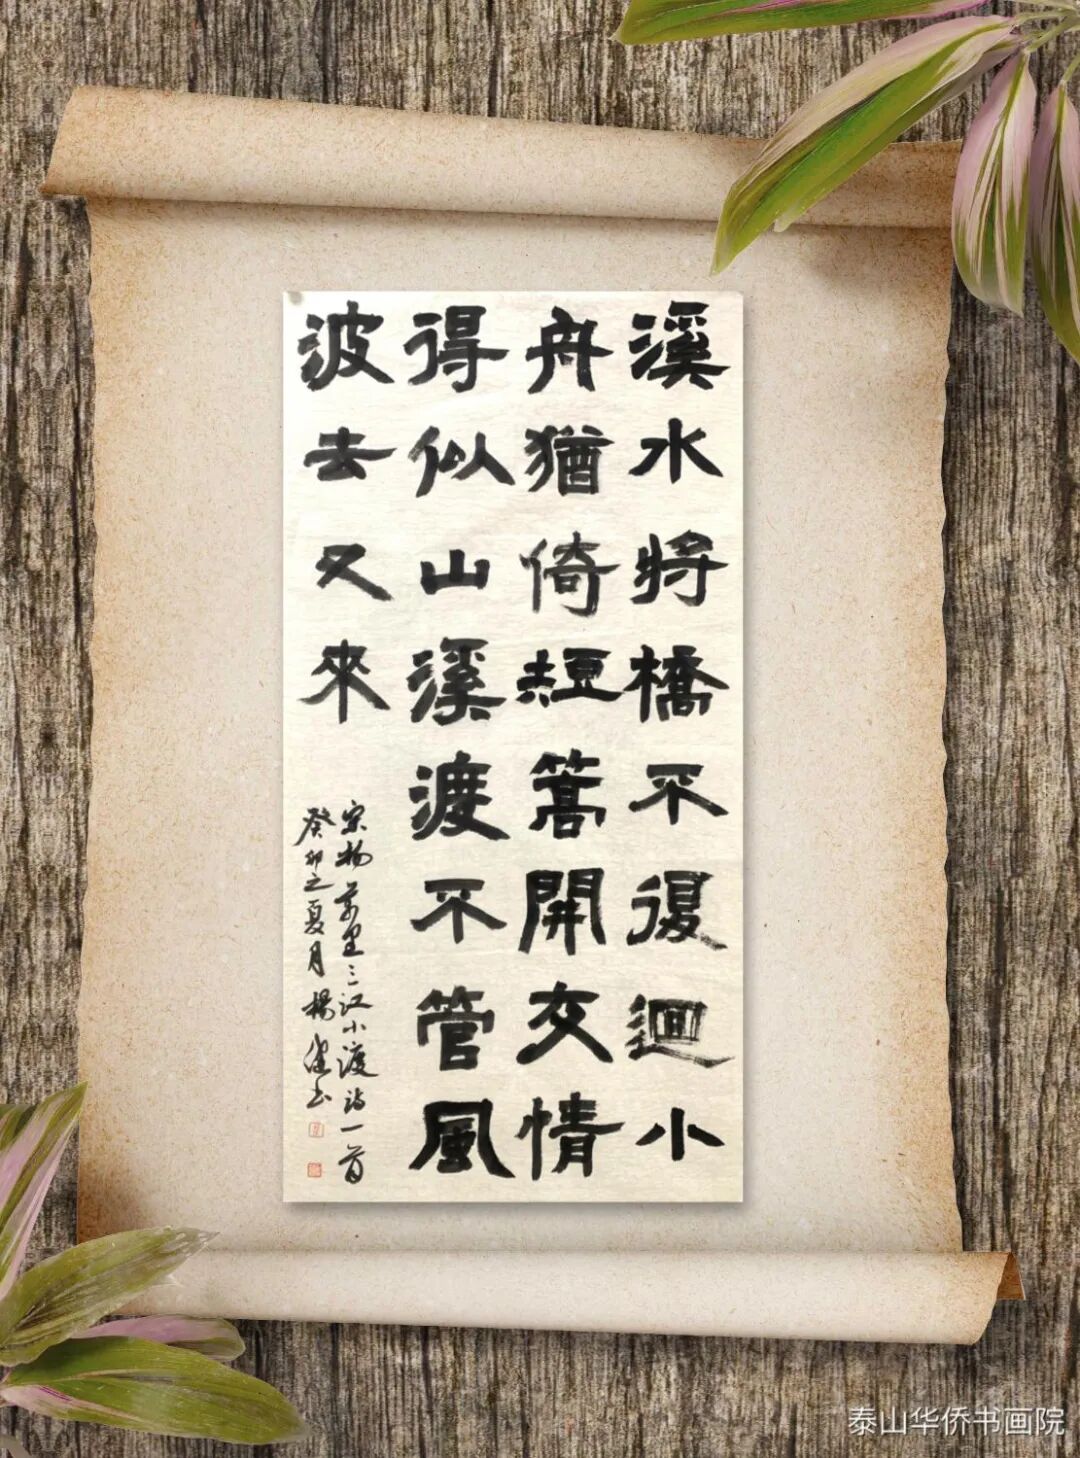 溪水將橋不復迴小
舟猶倚短篙開交情
得似山溪渡不管風
波去又來
宋杨萬里三江小渡诗一首
癸卯之夏月楊书
泰山华侨书画院